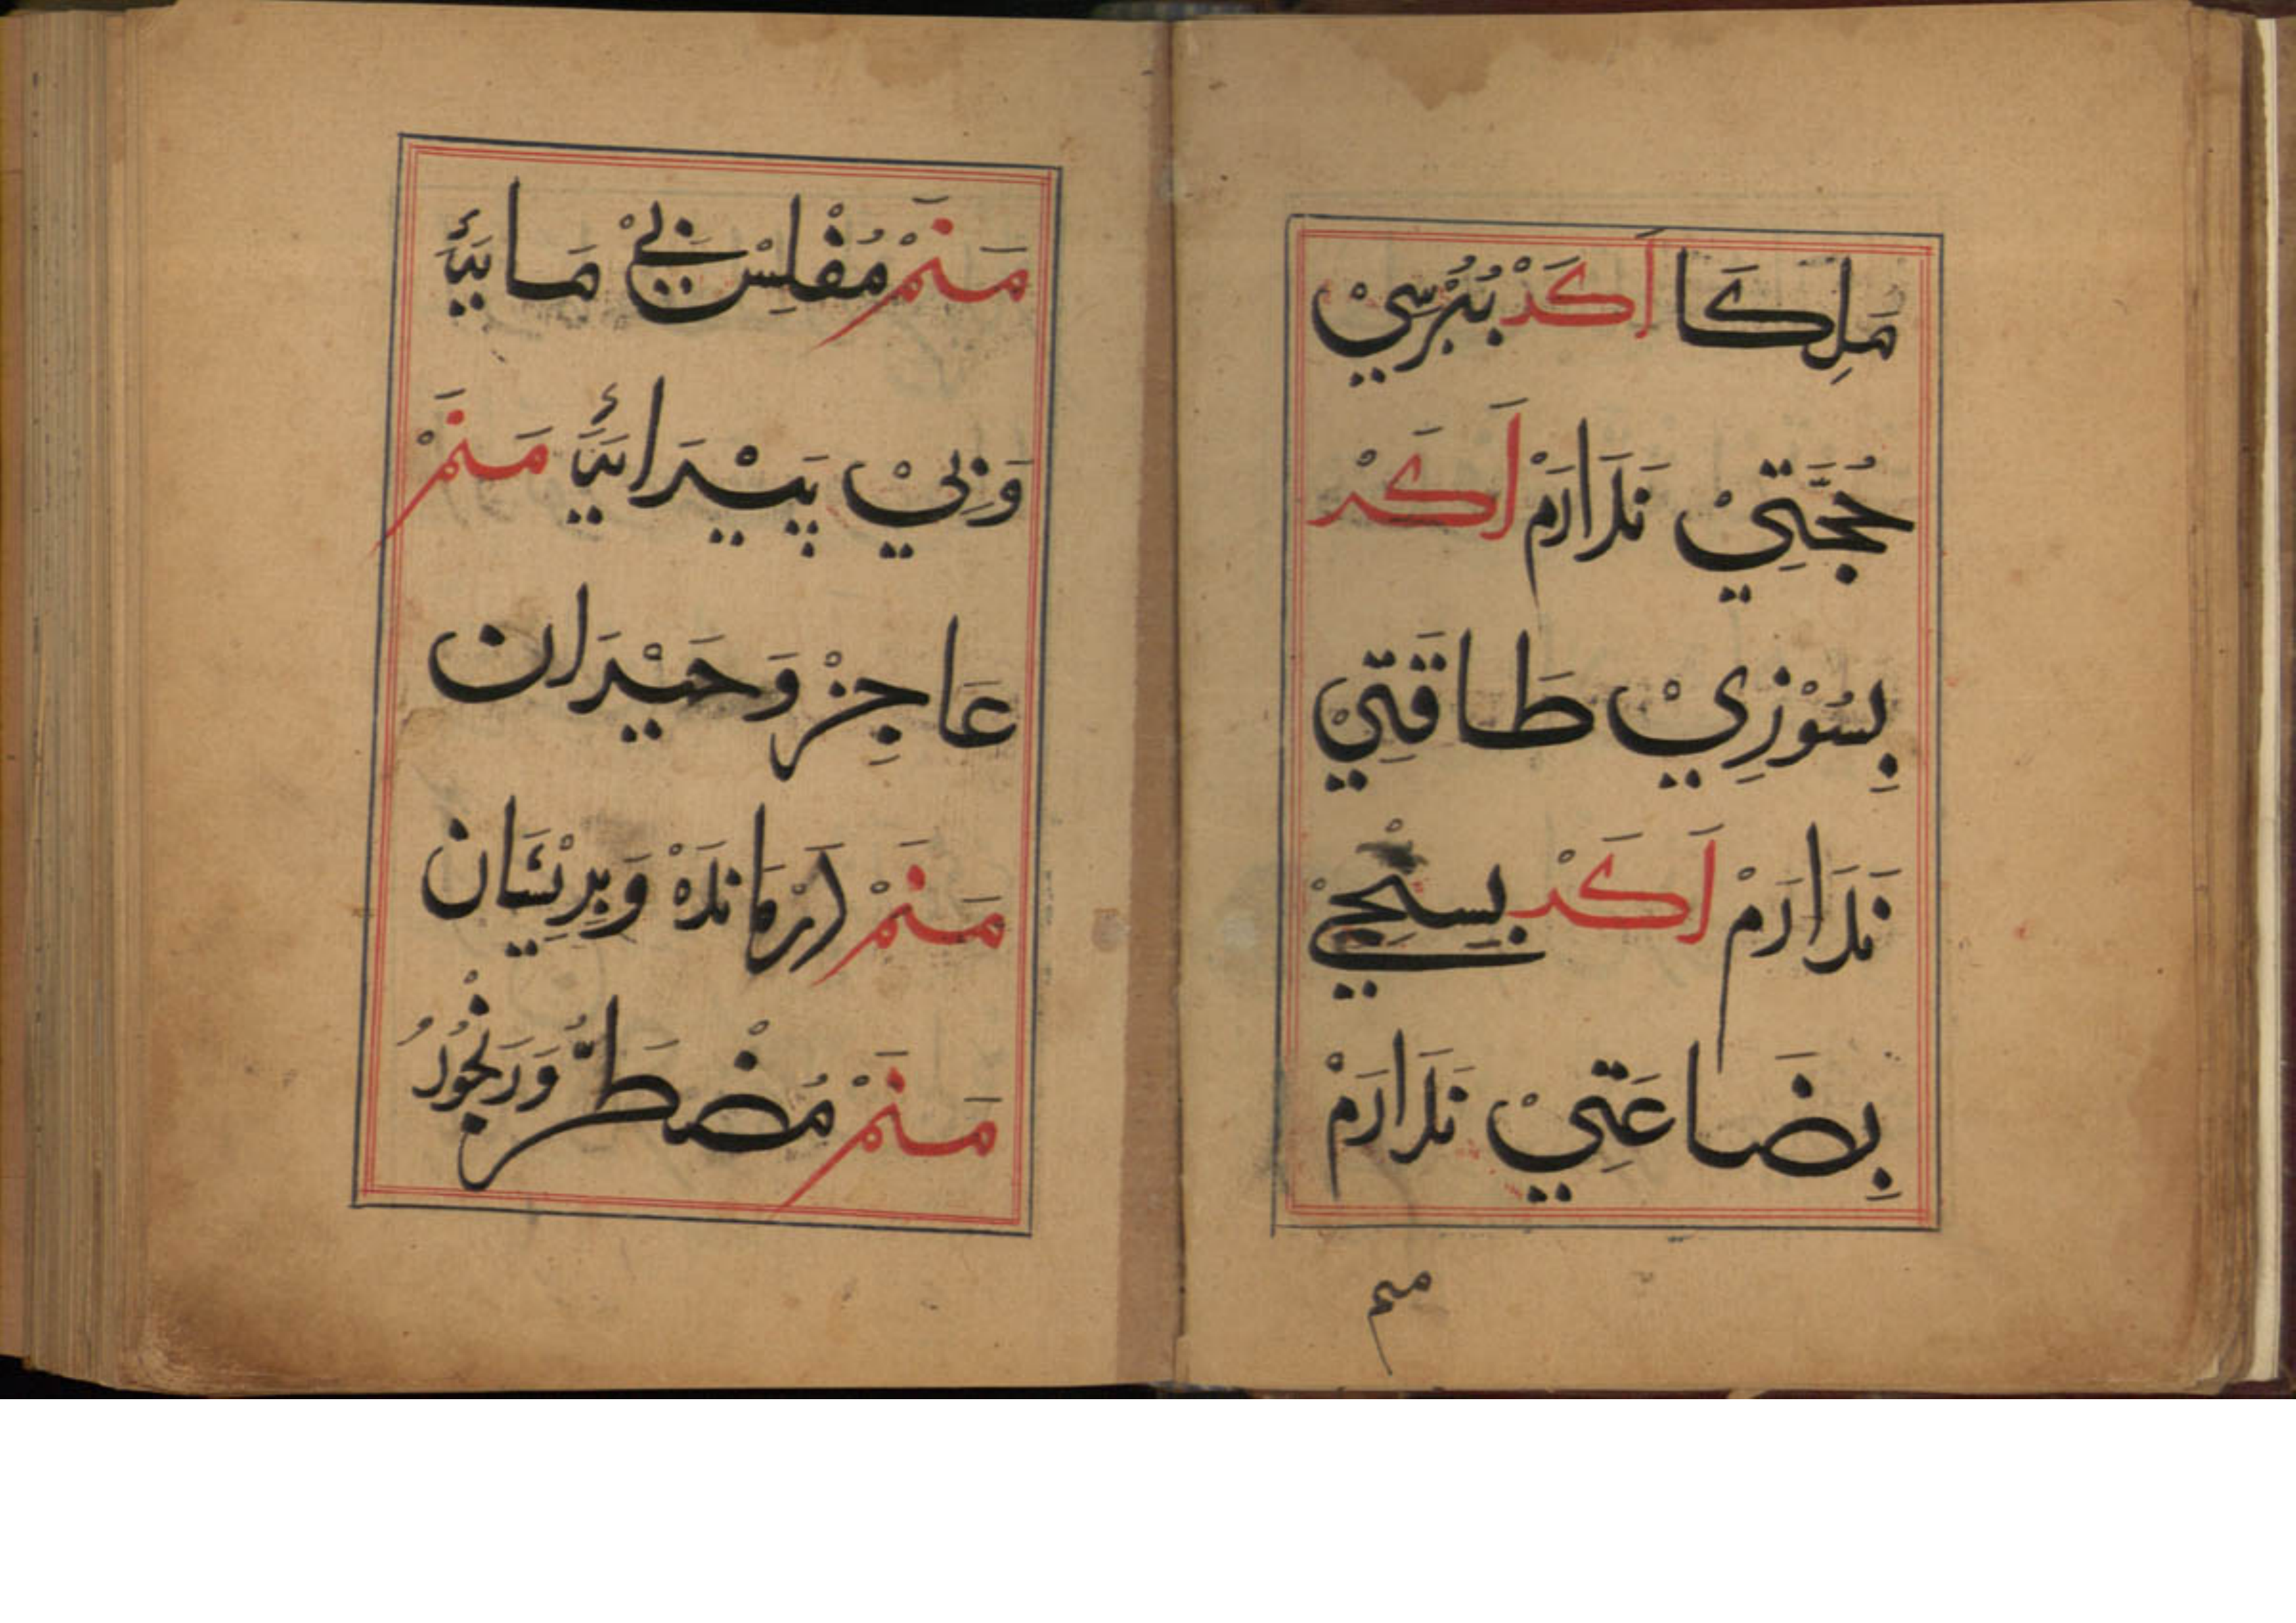 مَلِكَا اَكَرْ بُپُرْسِيْ
حُجَّتِيْ نَدَارَمْ اَكَرْ
بِسُوْزِيْ طَاقَتِيْ
نَدَارَمْ اَكَرْ بِسَنْجِيْ
بِضَاعَتِيْ نَدَارَمْ
منم
مَنَمْ مُفْلِسْ بِيْ مَايَۂ
وَبِيْ پَيْرَايَۂ مَنَمْ
عَاجِزْ وَحَيْرَان
مَنَمْ دَرْمَانْدَهْ وَپِرِيْشَان
مَنَمْ مُضْطَرُّ وَرَنْجُوْرُ